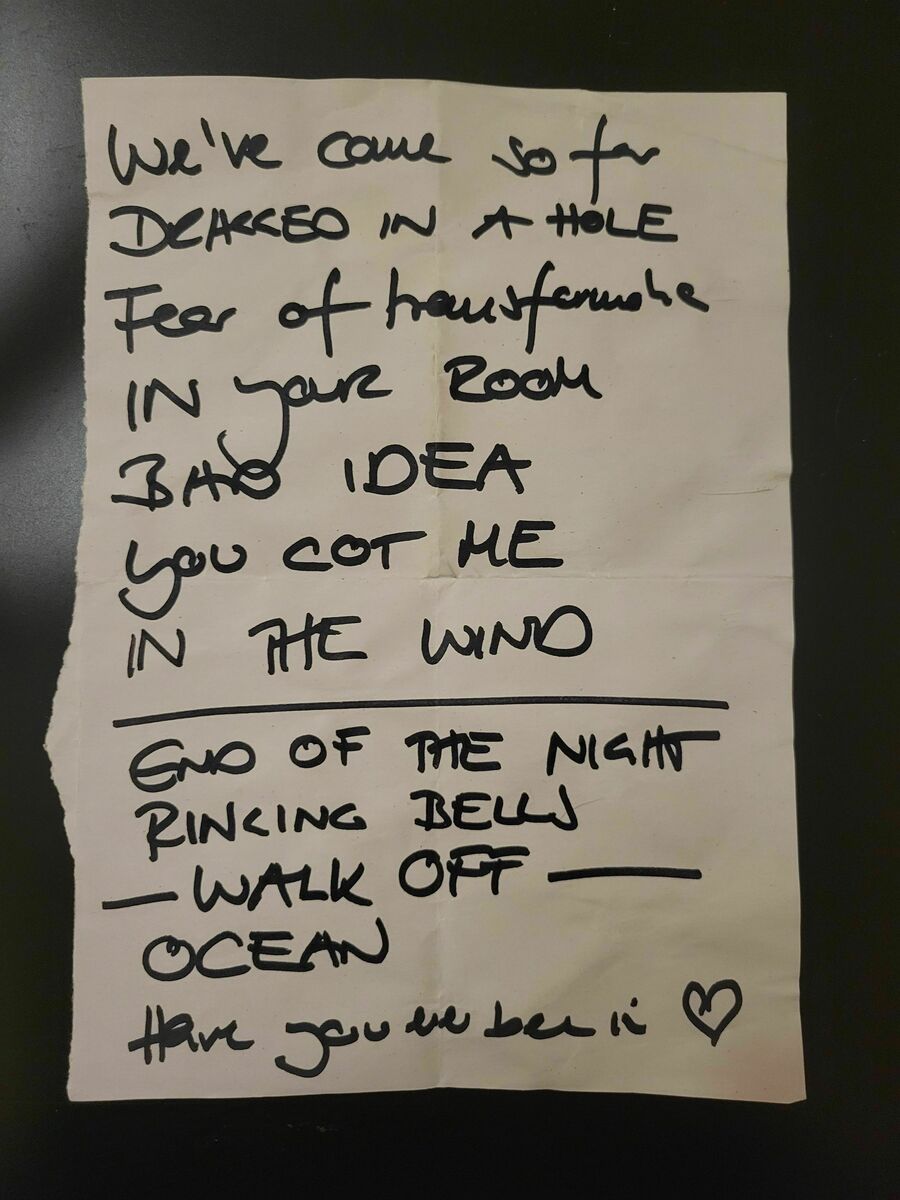 We've come so far
DRAGGED IN A HOLE
Fear of transformation
IN your ROOM
BAD IDEA
you GOT ME
IN THE WIND
END OF THE NIGHT
RINGING BELLS
— WALK OFF —
OCEAN
Have you ever been in ♡